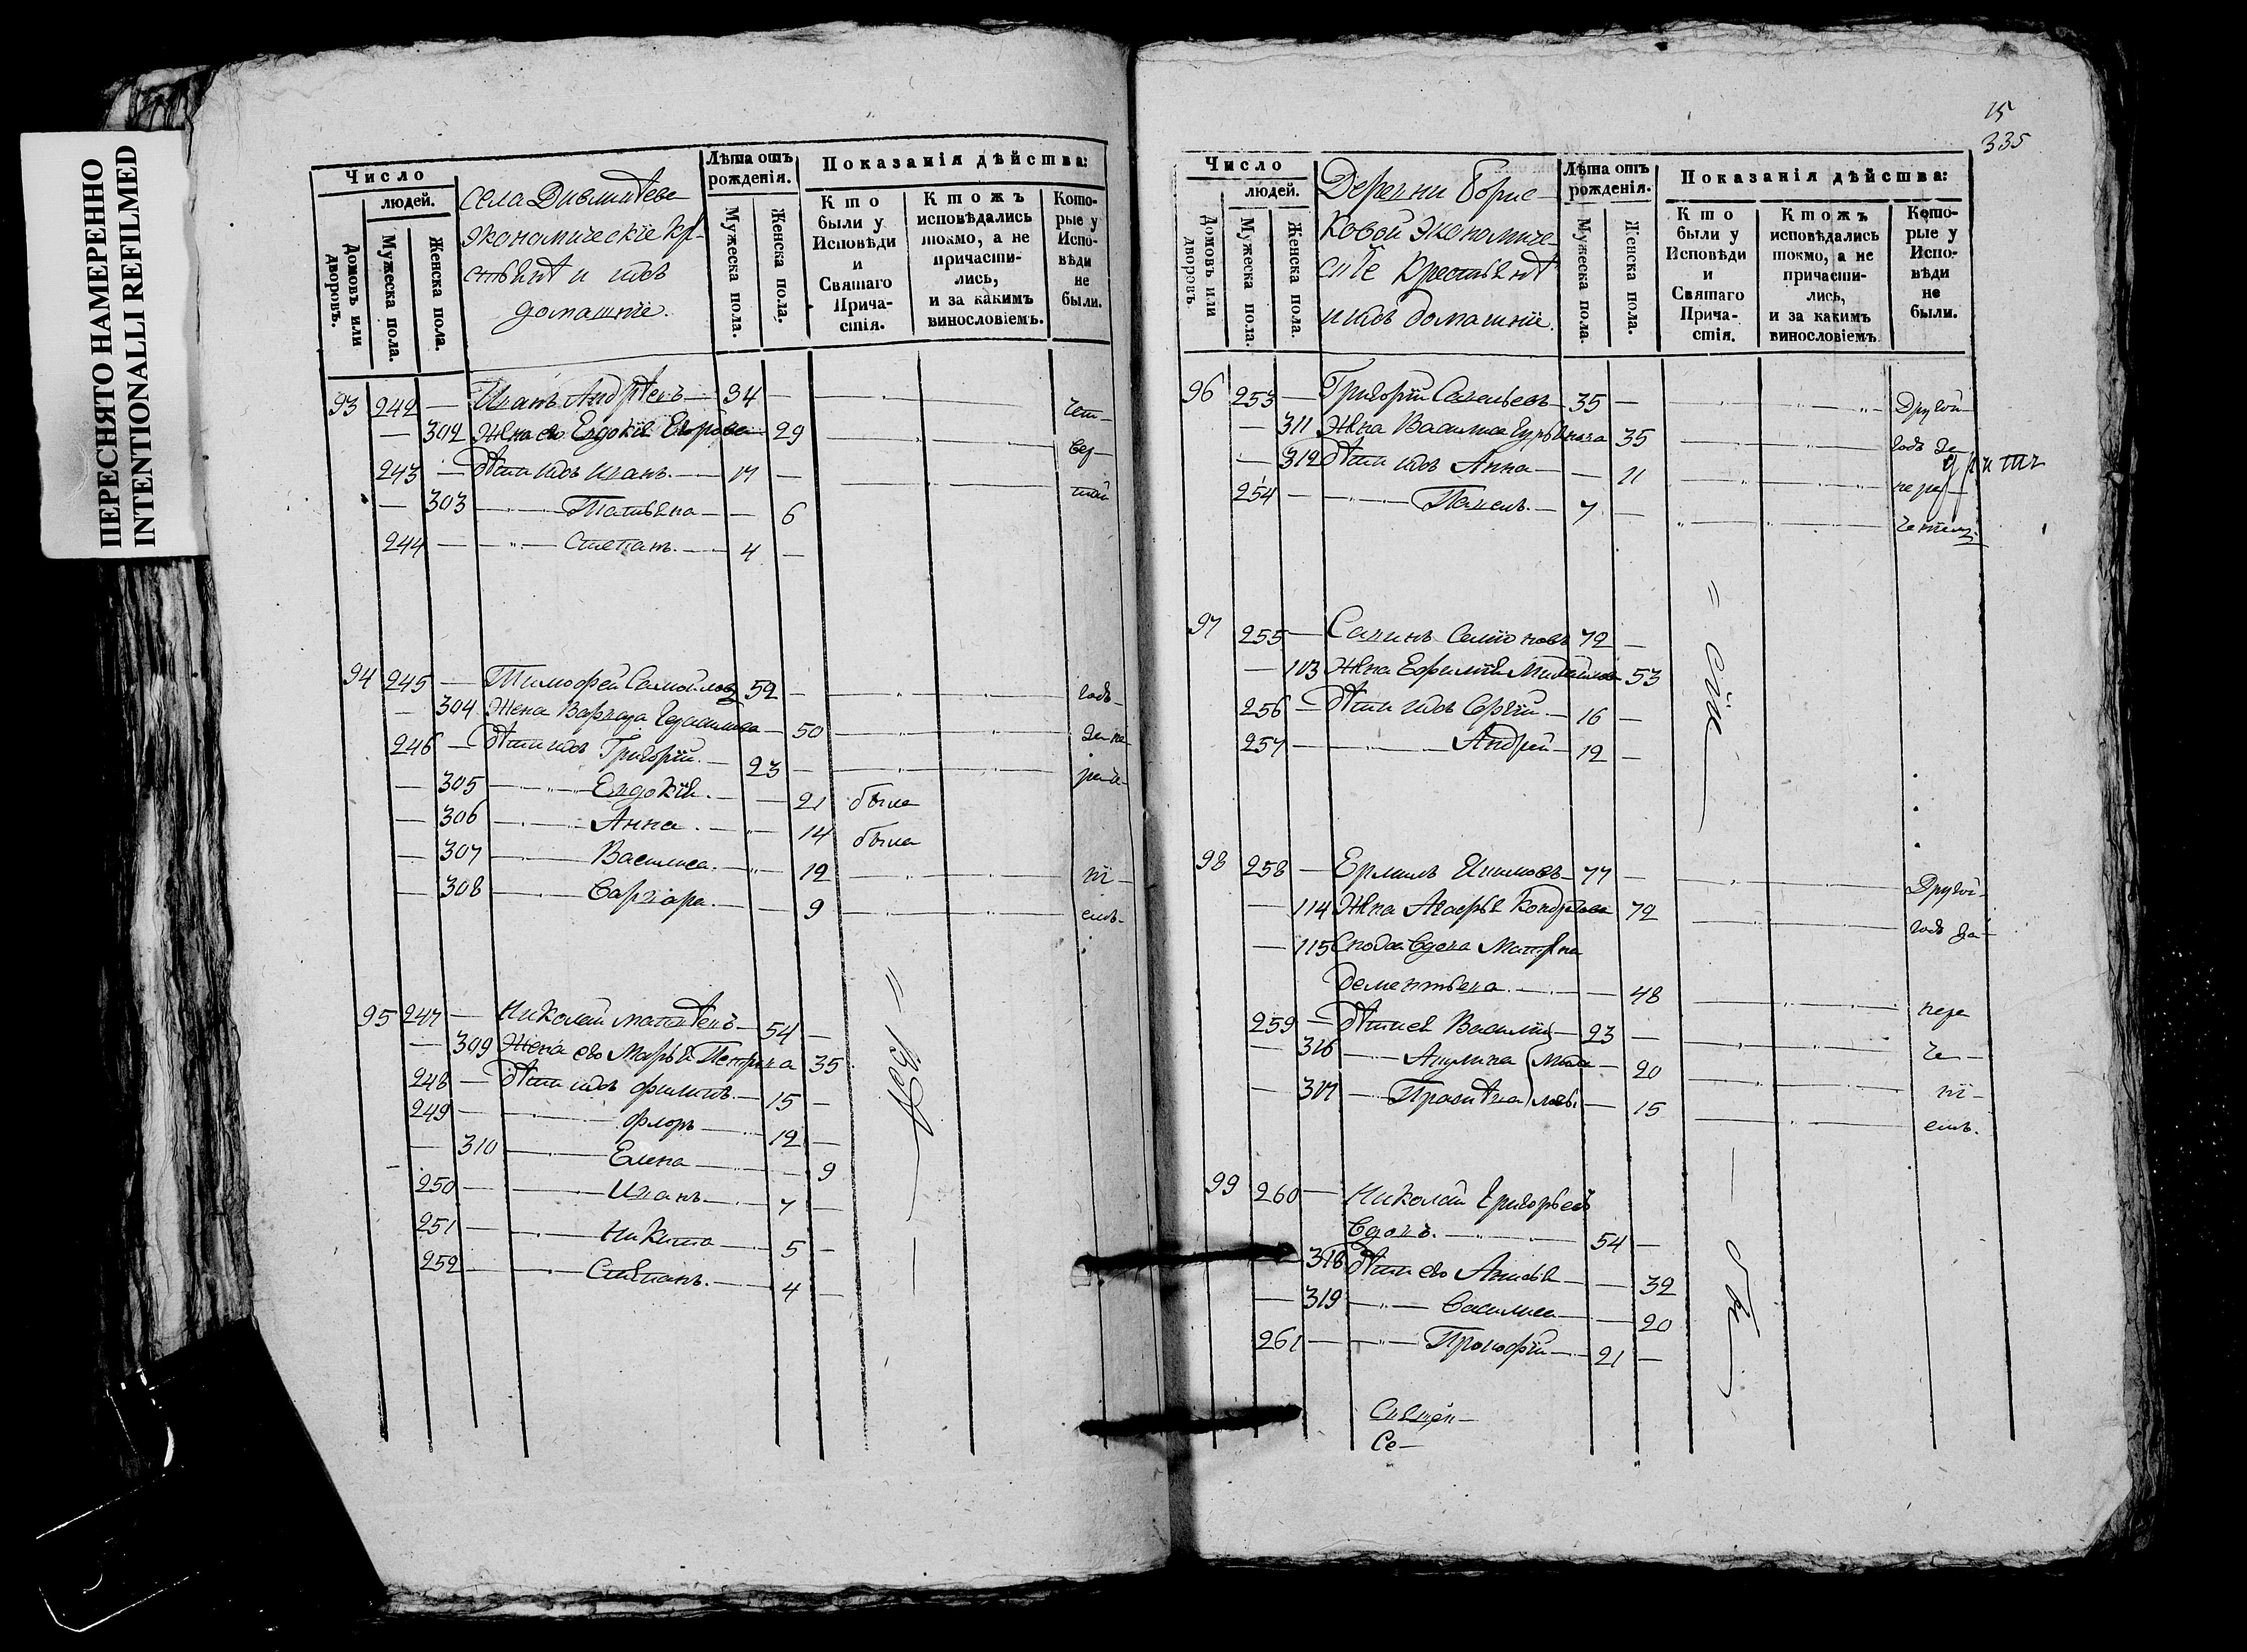 ПЕРЕСНЯТО НАМЕРЕННО
INTENTIONALLI REFILMED
Число
людей.
Домовъ или дворовъ.
Мужеска пола.
Женска пола.
Села
экономическіе кр-
стьянѣ и ихъ
домашніе.
Лѣта отъ рожденія.
Мужеска пола.
Женска пола.
Показанія дѣйства:
Кто были у Исповѣди и Святаго Прича-стія.
Ктожъ исповѣдались токмо, а не причасти-лись, и за какимъ винословіемъ.
Кото-рые у Испо-вѣди не были.
93 242 — Иванъ Андрѣевъ — 34 —
чет-
— 302 Жена его Евдокія Егорова — 29
вер-
243 — дѣти ихъ Иванъ. — 11 —
той
— 303 — Татьяна — — 6
244 — — Степанъ. — 4 —
94 245 — Тимофей Самойловъ 52 —
годъ
— 304 Жена Варвара Герасимова — 50
за не
246 — дѣти ихъ Григорій. — 23 —
раче-
— 305 — Евдокія. — 21 была
— 306 — Анна. — 14 была
— 307 — Василиса. — 12
ні-
— 308 — Варвара. — 9
емъ.
95 247 — Николай Матвѣевъ — 54 —
— 309 Жена его Марья Петрова 35
248 — дѣти ихъ Филипъ. — 15 —
249 — — Флоръ — 12 —
— 310 — Елена — 9
250 — — Иванъ — 7 —
251 — — Никита — 5 —
252 — — Степанъ. — 4 —
15
335
Число
людей.
Домовъ или дворовъ.
Мужеска пола.
Женска пола.
Деревни Борис-
ковой экономиче-
скіе крестьянѣ
и ихъ домашніе.
Лѣта отъ рожденія.
Мужеска пола.
Женска пола.
Показанія дѣйства:
Кто были у Исповѣди и Святаго Прича-стія.
Ктожъ исповѣдались токмо, а не причасти-лись, и за какимъ винословіемъ.
Кото-рые у Испо-вѣди не были.
96 253 — Григорій Савельевъ — 35 —
Другой
— 311 Жена Василиса Гурьянова 35
годъ за
— 312 дѣти ихъ Анна — — 11
нера
254 — — Павелъ. — 7 —
97 255 — Савинъ Семіоновъ 72 —
— 113 Жена Ефимія Михайлова 53
256 — дѣти ихъ Сергій — 16 —
257 — — Андрей — 12 —
98 258 — Ермилъ — 77 —
Другой
— 114 Жена Агафья Кондратова 72
годъ за
— 115 Сноха вдова Матрена
Дементьева. — 48
нера
259 — дѣти ея Василій — 23 —
че-
— 316 — Акулина 20
ні-
— 317 — 15
емъ.
99 260 — Николай Григорьевъ
вдовъ. — 54 —
— 318 дѣти его — — 32
— 319 — Василиса — — 20
261 — — Прокофій — 21 —
Се—